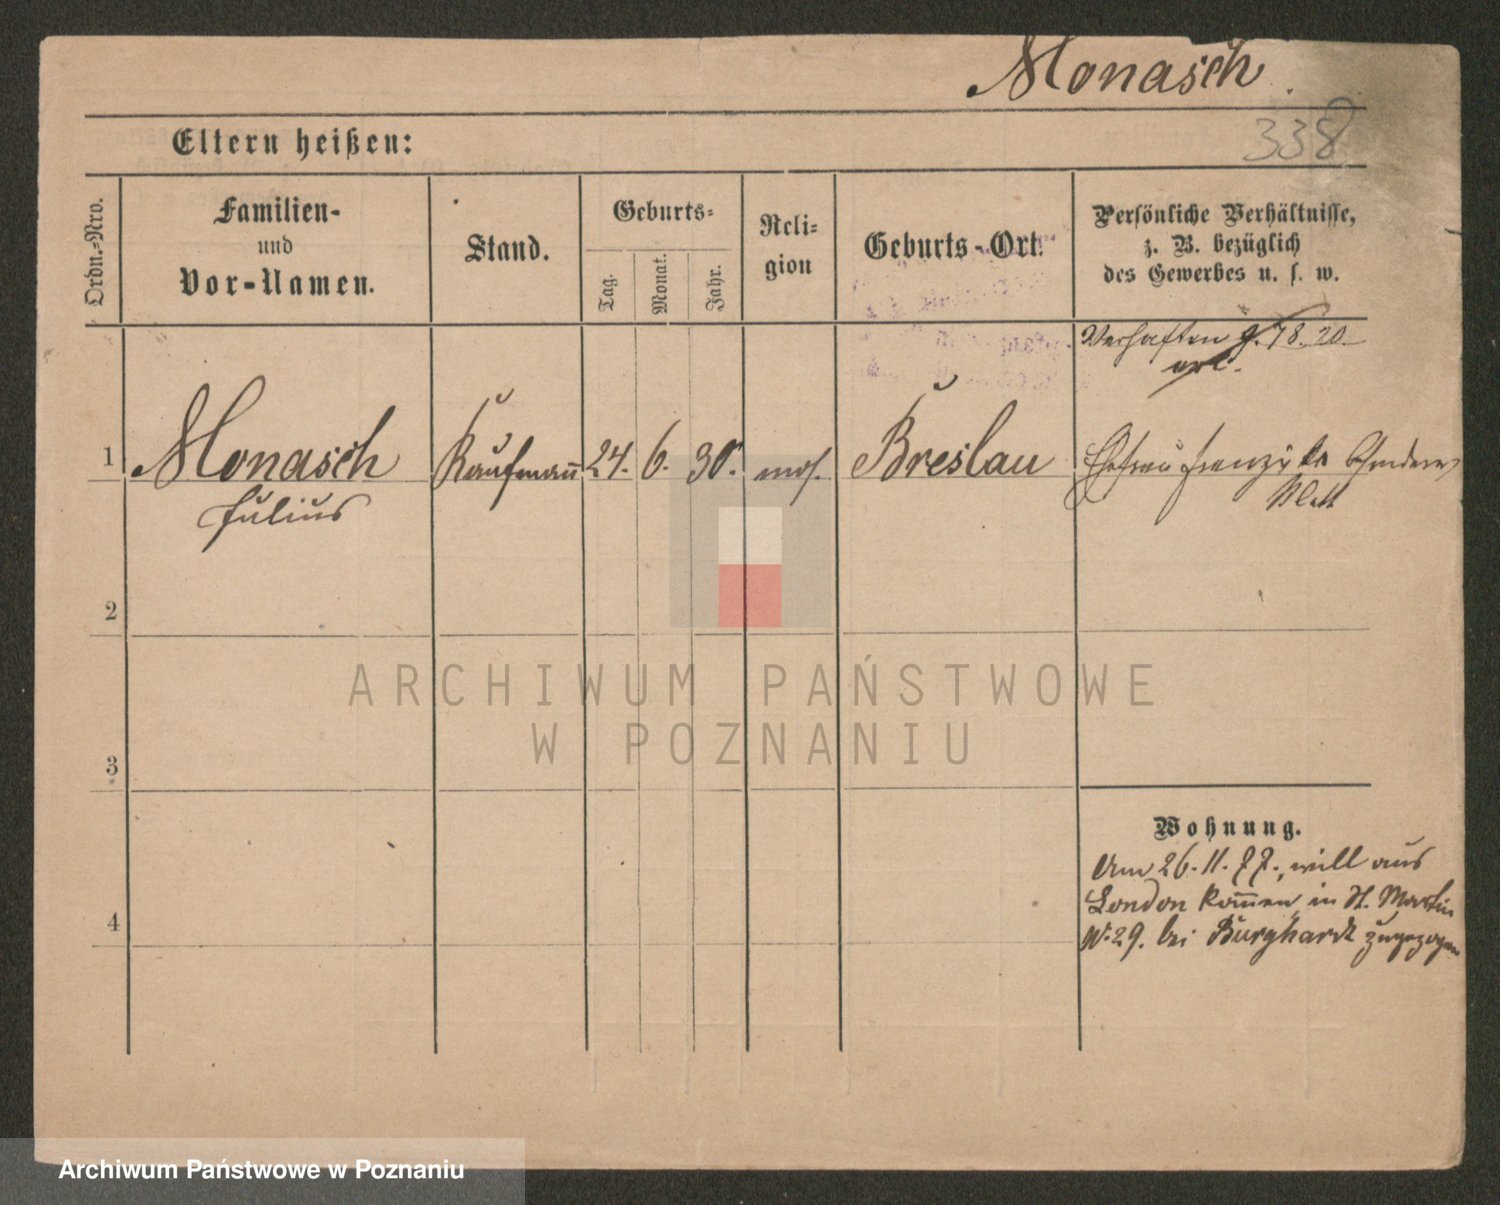 Monasch.
338
Eltern heißen:
Ordn.-Nro.
Familien-
und
Vor-Namen.
Stand.
Geburts-
Tag.
Monat.
Jahr.
Reli-
gion
Geburts-Ort.
Persönliche Verhältnisse,
z. B. bezüglich
des Gewerbes u. s. w.
1
Monasch
Julius
Kaufmann
24.
6.
30.
mos.
Breslau
Ehefrau
2
ARCHIWUM PAŃSTWOWE
W POZNANIU
3
Wohnung.
Am 26.11.77., will aus
London kommen in St. Martin
No 29. bei Burghardt zugezogen
4
Archiwum Państwowe w Poznaniu